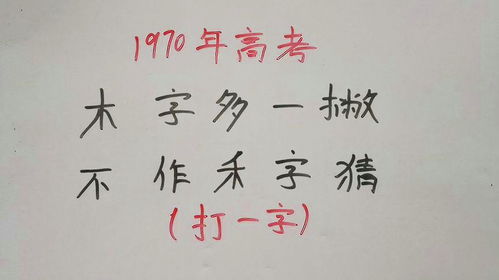 1970年高考
木字多一撇
不作禾字猜
(打一字)